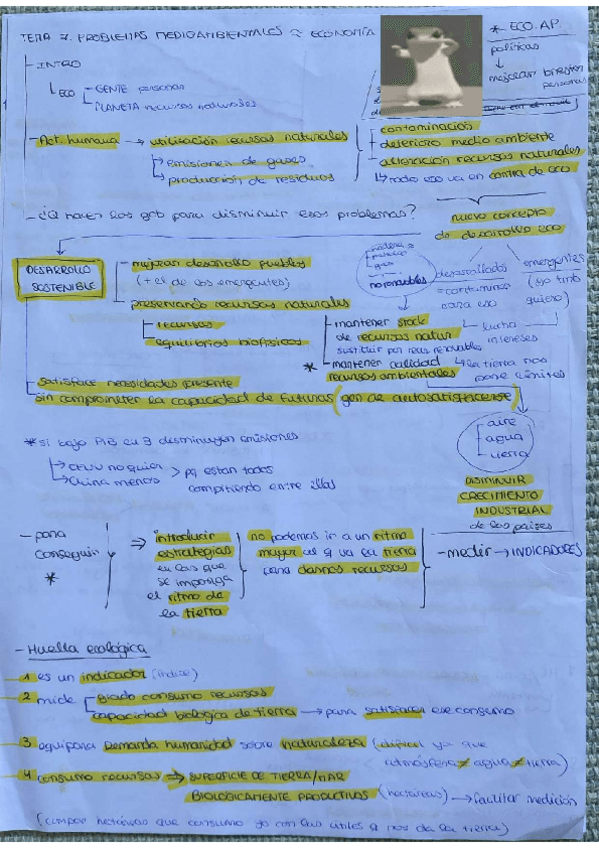 TEMA 7. PROBLEMAS MEDIOAMBIENTALES ≈ ECONOMÍA
* ECO. AP.
políticas
→ mejoran bienestar
personas
- INTRO
↳ ECO - GENTE personas
- PLANETA recursos naturales
- Act. humana → utilización recursos naturales
↳ emisiones de gases
↳ producción de residuos
contaminación
deterioro medio ambiente
alteración recursos naturales
↳ todo eso va en contra de eco
- ¿Q hacen los gob para disminuir esos problemas?
nuevo concepto
de desarrollo eco
DESARROLLO
SOSTENIBLE
- mejorar desarrollo pueblos
(+ el de los emergentes)
- preservando recursos naturales
- recursos
- equilibrios biofísicos
gas
no renovables
desarrollados
= contaminas
para eso
emergentes
(yo tmb
quiero)
↳ lucha
intereses
- mantener stock
de recursos natur
sustituir por recur. renovables
* - mantener calidad
recursos ambientales
↳ la tierra nos
pone límites
- satisface necesidades presente
- sin comprometer la capacidad de futuras gen de autosatisfacerse
aire
agua
tierra
* si bajo PIB en 3 disminuyen emisiones
↳ EEUU no quier
↳ China menos > pq estan todos
compitiendo entre ellos
DISMINUIR
CRECIMIENTO
INDUSTRIAL
de los países
- para
conseguir
*
⇒ introducir
estrategias
en las que
se imponga
el ritmo de
la tierra
no podemos ir a un ritmo
mayor al q va la tierra
para darnos recursos
- medir → INDICADORES
- Huella ecológica
1 es un indicador (índice)
2 mide - grado consumo recursos
- capacidad biologica de tierra → para satisfacer ese consumo
3 equipara demanda humanidad sobre naturaleza (difícil ya que
atmósfera ≠ agua ≠ tierra)
4 consumo recursos ⇒ SUPERFICIE DE TIERRA/MAR
BIOLÓGICAMENTE PRODUCTIVOS (hectáreas) → facilitar medición
(compar hectáreas que consumo yo con las útiles q nos da la tierra)